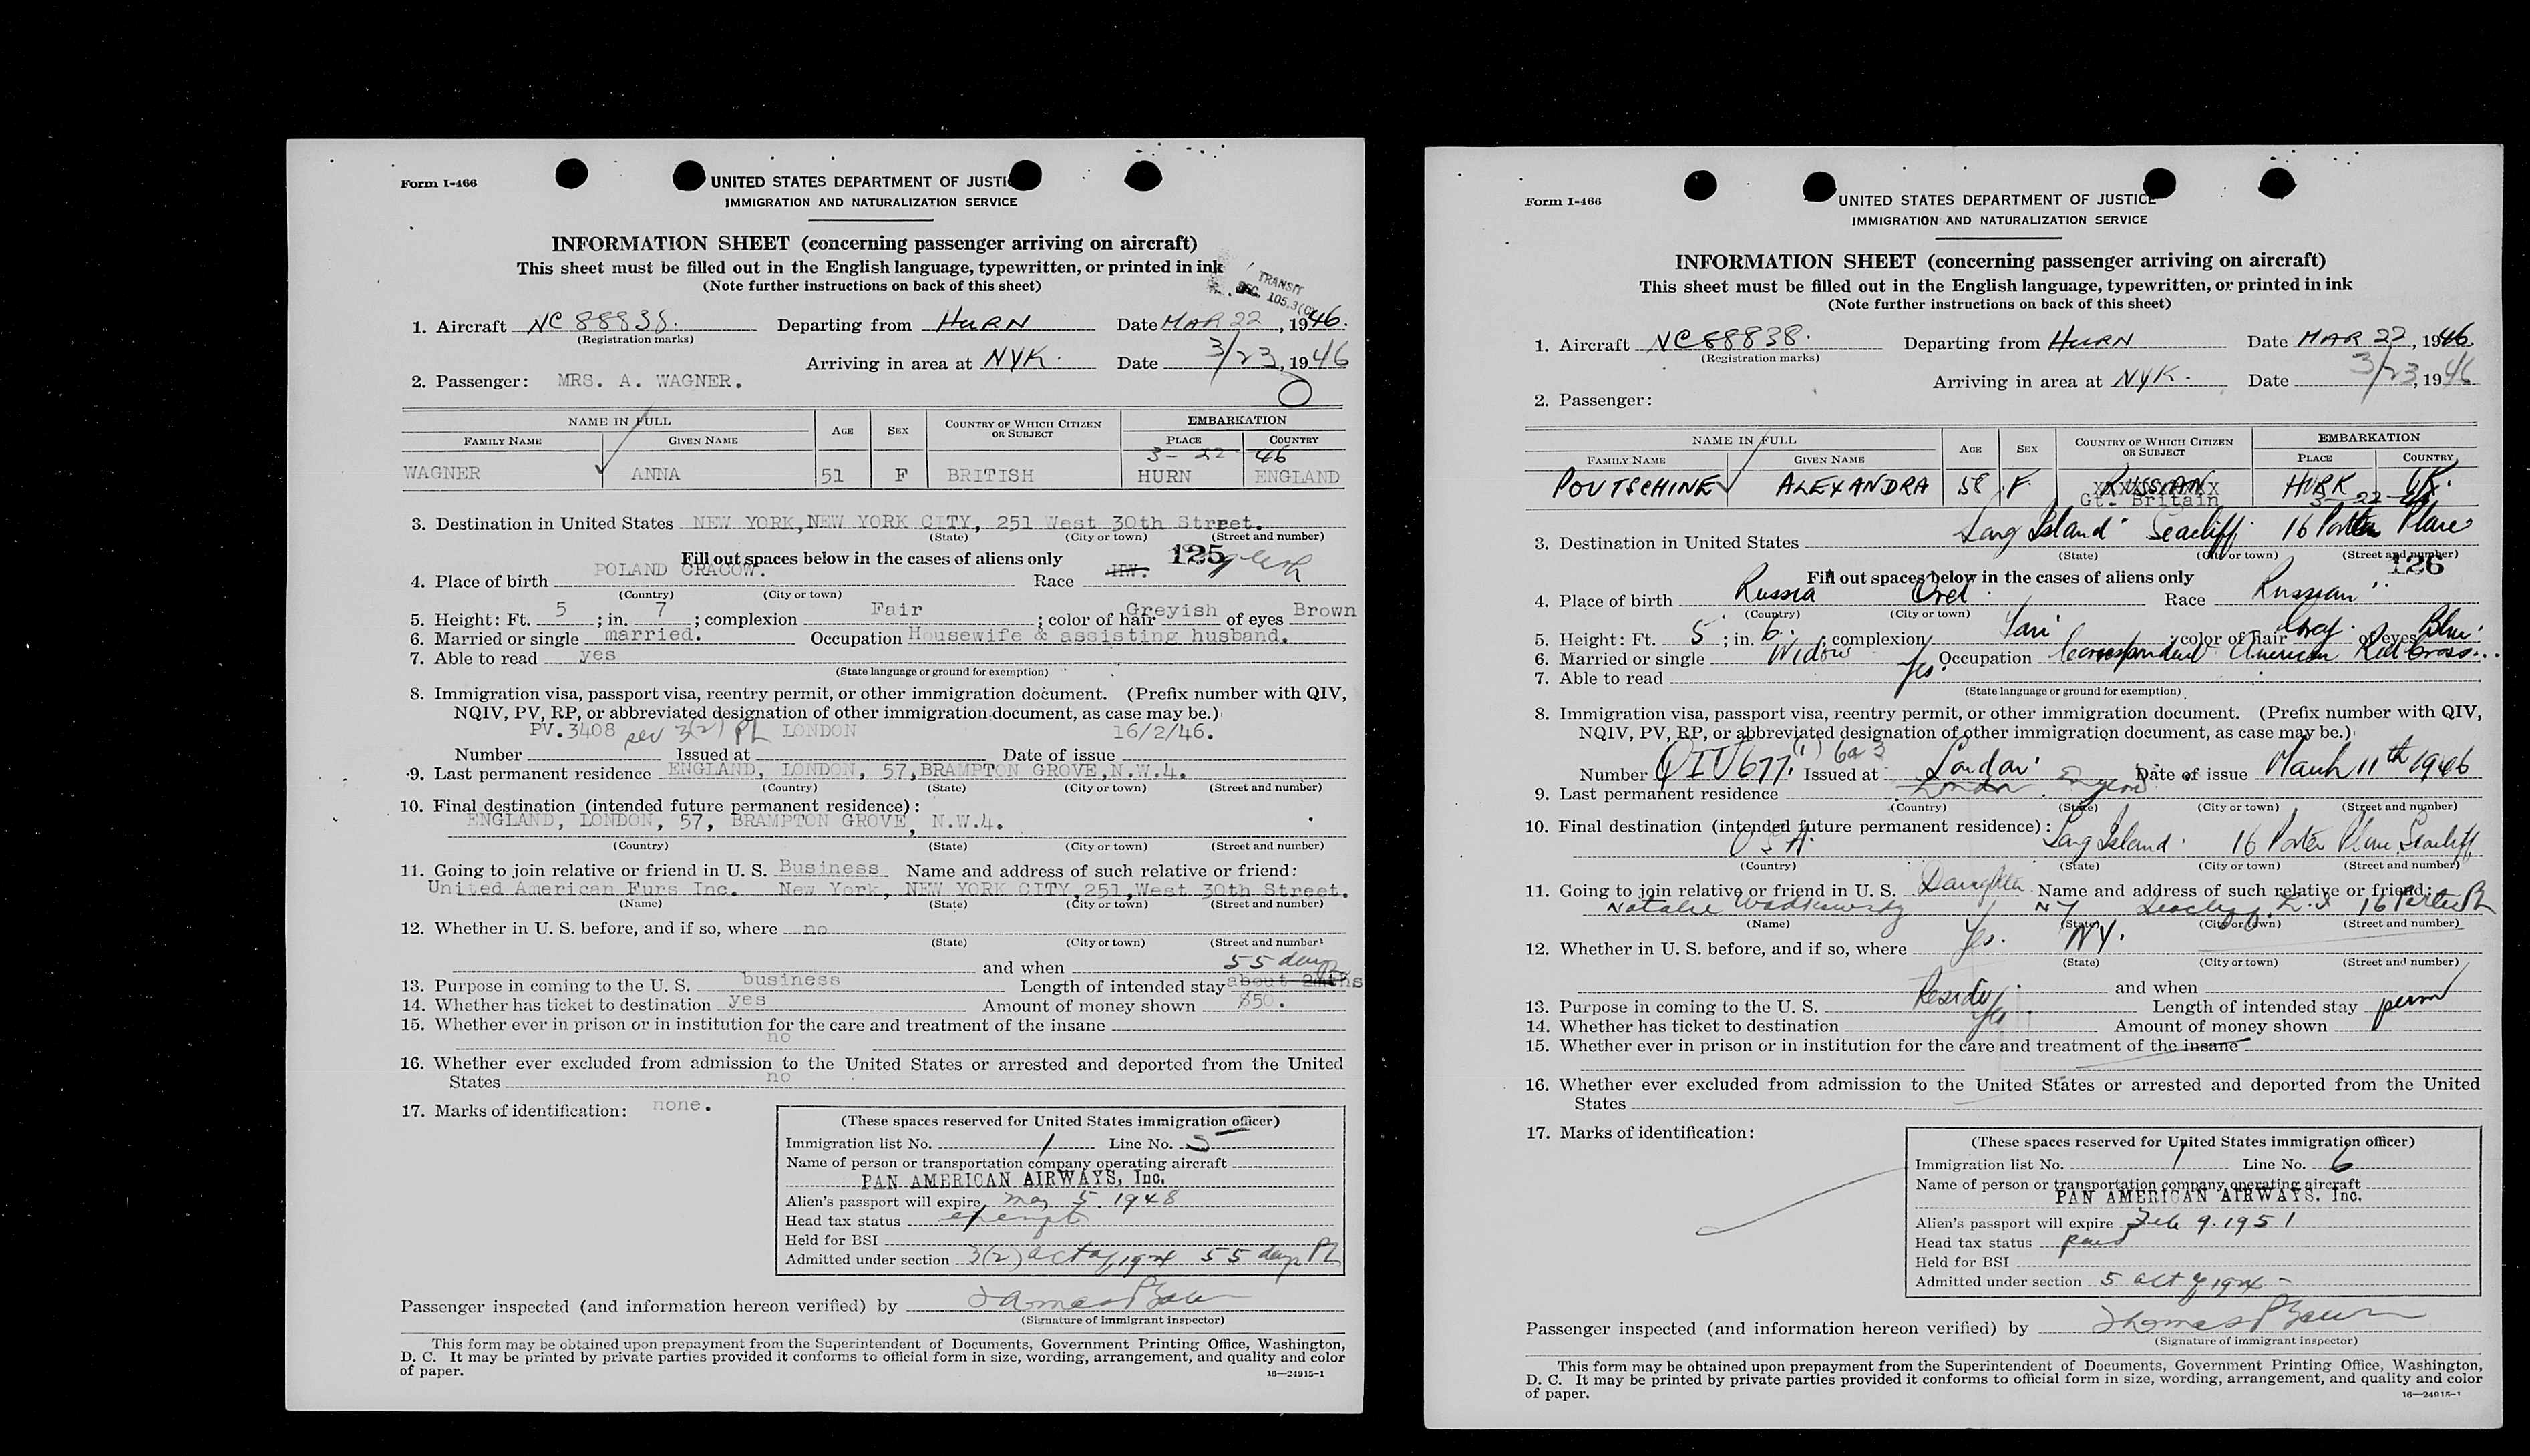 Form I-466
UNITED STATES DEPARTMENT OF JUSTI
IMMIGRATION AND NATURALIZATION SERVICE
INFORMATION SHEET (concerning passenger arriving on aircraft)
This sheet must be filled out in the English language, typewritten, or printed in ink
(Note further instructions on back of this sheet)
TRANSIT
SEC. 105.3(
1. Aircraft NC 88838. Departing from HURN Date MAR 22, 1946.
(Registration marks)
Arriving in area at NYK. Date 3/23, 1946
2. Passenger: MRS. A. WAGNER.
NAME IN FULL AGE SEX COUNTRY OF WHICH CITIZEN OR SUBJECT EMBARKATION
FAMILY NAME GIVEN NAME PLACE COUNTRY
3- 22 46
WAGNER ANNA 51 F BRITISH HURN ENGLAND
3. Destination in United States NEW YORK, NEW YORK CITY, 251 West 30th Street.
(State) (City or town) (Street and number)
Fill out spaces below in the cases of aliens only 125
4. Place of birth POLAND CRACOW. Race
(Country) (City or town)
5. Height: Ft. 5 ; in. 7 ; complexion Fair ; color of hair Greyish of eyes Brown
6. Married or single married. Occupation Housewife & assisting husband.
7. Able to read yes
(State language or ground for exemption)
8. Immigration visa, passport visa, reentry permit, or other immigration document. (Prefix number with QIV,
NQIV, PV, RP, or abbreviated designation of other immigration document, as case may be.)
PV.3408 sec 3(2) PL LONDON 16/2/46.
Number Issued at Date of issue
9. Last permanent residence ENGLAND, LONDON, 57, BRAMPTON GROVE, N.W.4.
(Country) (State) (City or town) (Street and number)
10. Final destination (intended future permanent residence):
ENGLAND, LONDON, 57, BRAMPTON GROVE, N.W.4.
(Country) (State) (City or town) (Street and number)
11. Going to join relative or friend in U. S. Business Name and address of such relative or friend:
United American Furs Inc. New York, NEW YORK CITY, 251, West 30th Street.
(Name) (State) (City or town) (Street and number)
12. Whether in U. S. before, and if so, where no
(State) (City or town) (Street and number)
and when 55 days
13. Purpose in coming to the U. S. business Length of intended stay about 2mths
14. Whether has ticket to destination yes Amount of money shown $50.
15. Whether ever in prison or in institution for the care and treatment of the insane
no
16. Whether ever excluded from admission to the United States or arrested and deported from the United
States no
17. Marks of identification: none.
(These spaces reserved for United States immigration officer)
Immigration list No. 1 Line No. 5
Name of person or transportation company operating aircraft
PAN AMERICAN AIRWAYS, Inc.
Alien's passport will expire May 5. 1948
Head tax status exempt
Held for BSI
Admitted under section 3(2) act of 1924 55 days PL
Passenger inspected (and information hereon verified) by
(Signature of immigrant inspector)
This form may be obtained upon prepayment from the Superintendent of Documents, Government Printing Office, Washington,
D. C. It may be printed by private parties provided it conforms to official form in size, wording, arrangement, and quality and color
of paper. 16—24915-1
Form I-466
UNITED STATES DEPARTMENT OF JUSTICE
IMMIGRATION AND NATURALIZATION SERVICE
INFORMATION SHEET (concerning passenger arriving on aircraft)
This sheet must be filled out in the English language, typewritten, or printed in ink
(Note further instructions on back of this sheet)
1. Aircraft NC88838. Departing from HURN Date MAR 22, 1946.
(Registration marks)
Arriving in area at NYK. Date 3/23, 1946
2. Passenger:
NAME IN FULL AGE SEX COUNTRY OF WHICH CITIZEN OR SUBJECT EMBARKATION
FAMILY NAME GIVEN NAME PLACE COUNTRY
POUTSCHINE ALEXANDRA 58 F. RUSSIAN HURK UK.
Gt- Britain 3-22-46
3. Destination in United States Long Island Seacliff 16 Porter Place
(State) (City or town) (Street and number)
Fill out spaces below in the cases of aliens only 126
4. Place of birth Russia Orel Race Russian
(Country) (City or town)
5. Height: Ft. 5 ; in. 6. ; complexion Fair ; color of hair Grey of eyes Blue
6. Married or single Widow Occupation Correspondent American Red Cross
7. Able to read Yes.
(State language or ground for exemption)
8. Immigration visa, passport visa, reentry permit, or other immigration document. (Prefix number with QIV,
NQIV, PV, RP, or abbreviated designation of other immigration document, as case may be.)
Number QIV 677. (1) 6a3 Issued at London Date of issue March 11th 1946
9. Last permanent residence London England
(Country) (State) (City or town) (Street and number)
10. Final destination (intended future permanent residence):
USA. Long Island. 16 Porter Place Seacliff
(Country) (State) (City or town) (Street and number)
11. Going to join relative or friend in U. S. Daughter Name and address of such relative or friend:
Natalie NY Seacliff L.I 16 Porter Pl
(Name) (State) (City or town) (Street and number)
12. Whether in U. S. before, and if so, where Yes. NY.
(State) (City or town) (Street and number)
and when
13. Purpose in coming to the U. S. Reside Length of intended stay perm
14. Whether has ticket to destination Yes Amount of money shown
15. Whether ever in prison or in institution for the care and treatment of the insane
16. Whether ever excluded from admission to the United States or arrested and deported from the United
States
17. Marks of identification:
(These spaces reserved for United States immigration officer)
Immigration list No. 1 Line No. 6
Name of person or transportation company operating aircraft
PAN AMERICAN AIRWAYS, Inc.
Alien's passport will expire Feb 9. 1951
Head tax status paid
Held for BSI
Admitted under section 5 act of 1924 -
Passenger inspected (and information hereon verified) by
(Signature of immigrant inspector)
This form may be obtained upon prepayment from the Superintendent of Documents, Government Printing Office, Washington,
D. C. It may be printed by private parties provided it conforms to official form in size, wording, arrangement, and quality and color
of paper. 16—24915-1